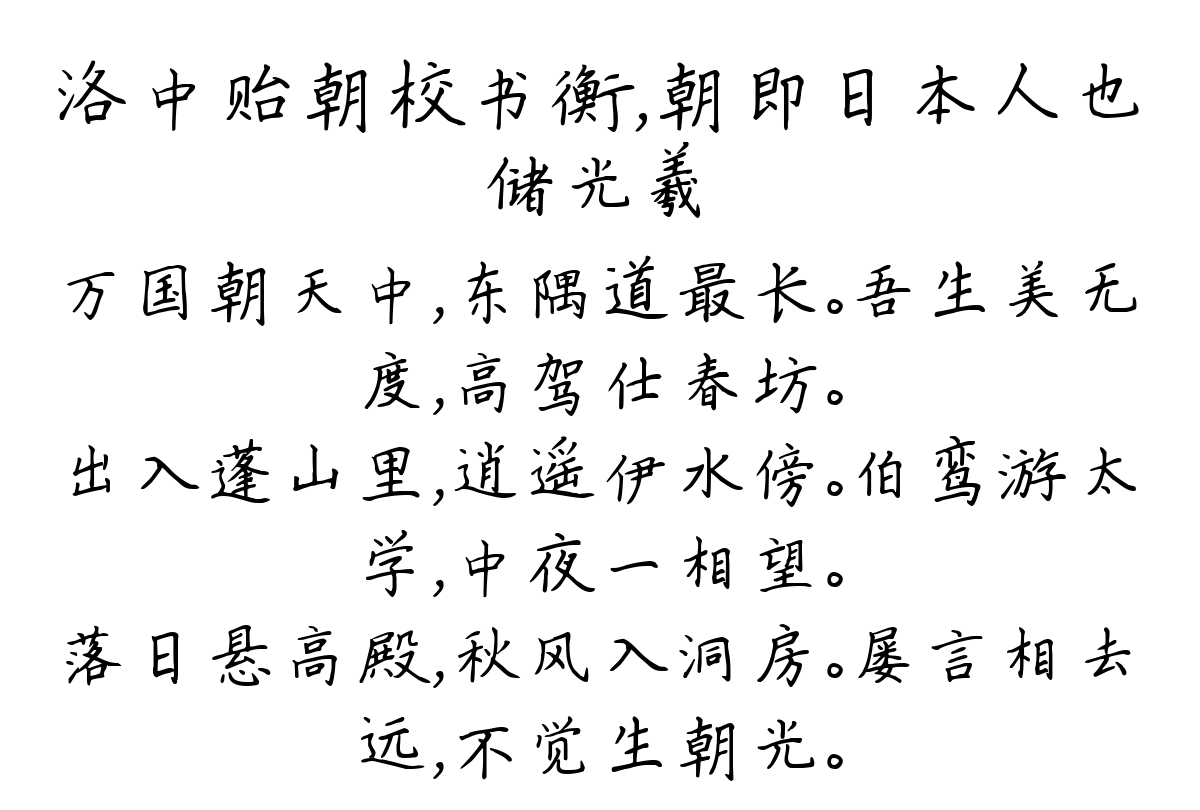 洛中贻朝校书衡,朝即日本人也
储光羲
万国朝天中,东隅道最长。吾生美无
度,高驾仕春坊。
出入蓬山里,逍遥伊水傍。伯鸾游太
学,中夜一相望。
落日悬高殿,秋风入洞房。屡言相去
远,不觉生朝光。